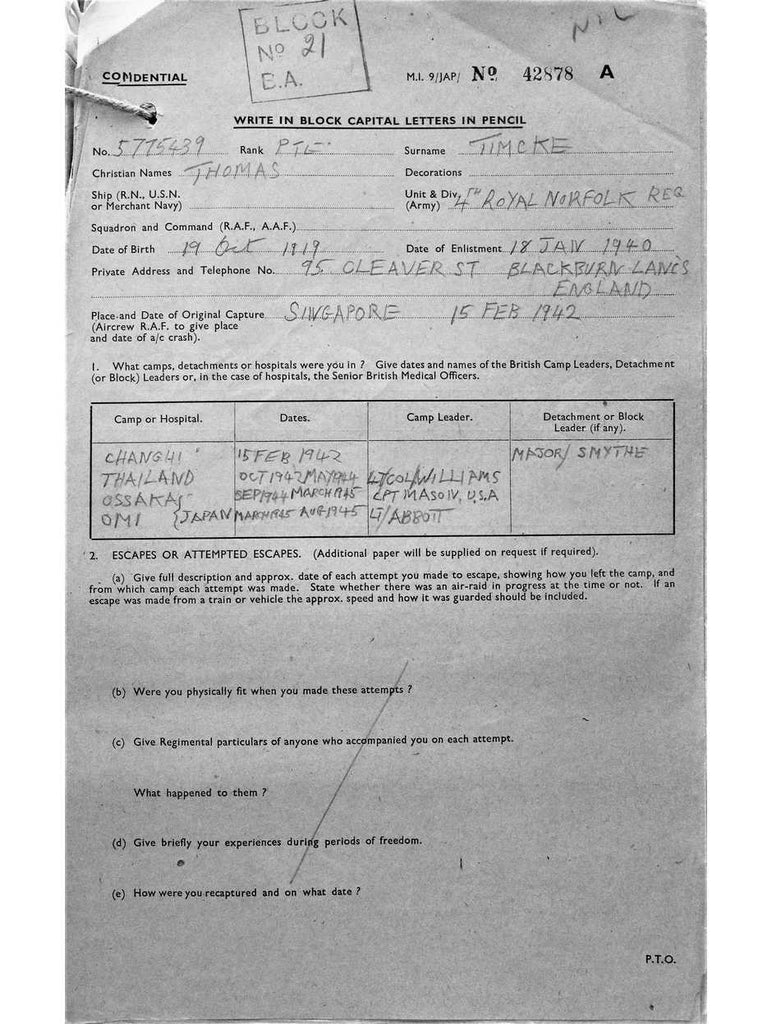 BLOCK
Nº 21
E.A.
NIL
CONDENTIAL
M.I. 9/JAP/ Nº 42878 A
WRITE IN BLOCK CAPITAL LETTERS IN PENCIL
No. 5775439 Rank PTE. Surname TIMCKE
Christian Names THOMAS Decorations
Ship (R.N., U.S.N. or Merchant Navy) Unit & Div. (Army) 4TH ROYAL NORFOLK REG
Squadron and Command (R.A.F., A.A.F.)
Date of Birth 19 Oct 1919 Date of Enlistment 18 JAN 1940
Private Address and Telephone No. 95 CLEAVER ST BLACKBURN LANCS
ENGLAND
Place and Date of Original Capture SINGAPORE 15 FEB 1942
(Aircrew R.A.F. to give place
and date of a/c crash).
1. What camps, detachments or hospitals were you in ? Give dates and names of the British Camp Leaders, Detachment
(or Block) Leaders or, in the case of hospitals, the Senior British Medical Officers.
Camp or Hospital. Dates. Camp Leader. Detachment or Block Leader (if any).
CHANGHI 15 FEB 1942 MAJOR/ SMYTHE
THAILAND OCT 1942 MAY 1944 LT/COL/WILLIAMS
OSSAKA SEP 1944 MARCH 1945 CPT MASON, U.S.A
OMI {JAPAN MARCH 1945 AUG 1945 LT/ABBOTT
2. ESCAPES OR ATTEMPTED ESCAPES. (Additional paper will be supplied on request if required).
(a) Give full description and approx. date of each attempt you made to escape, showing how you left the camp, and
from which camp each attempt was made. State whether there was an air-raid in progress at the time or not. If an
escape was made from a train or vehicle the approx. speed and how it was guarded should be included.
(b) Were you physically fit when you made these attempts ?
(c) Give Regimental particulars of anyone who accompanied you on each attempt.
What happened to them ?
(d) Give briefly your experiences during periods of freedom.
(e) How were you recaptured and on what date ?
P.T.O.